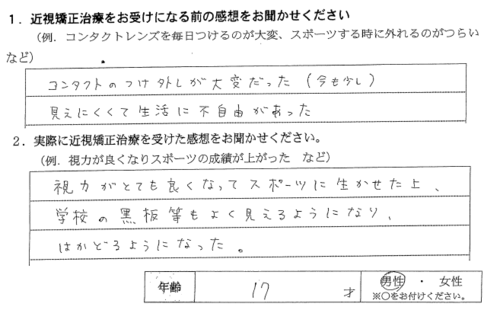 1．近視矯正治療をお受けになる前の感想をお聞かせください
（例．コンタクトレンズを毎日つけるのが大変、スポーツする時に外れるのがつらい
など）
コンタクトのつけ外しが大変だった（今も少し）
見えにくくて生活に不自由があった
2．実際に近視矯正治療を受けた感想をお聞かせください。
（例．視力が良くなりスポーツの成績が上がった　など）
視力がとても良くなってスポーツに生かせた上、
学校の黒板等もよく見えるようになり、
はかどるようになった。
年齢　17　才　男性　・　女性
※○をお付けください。